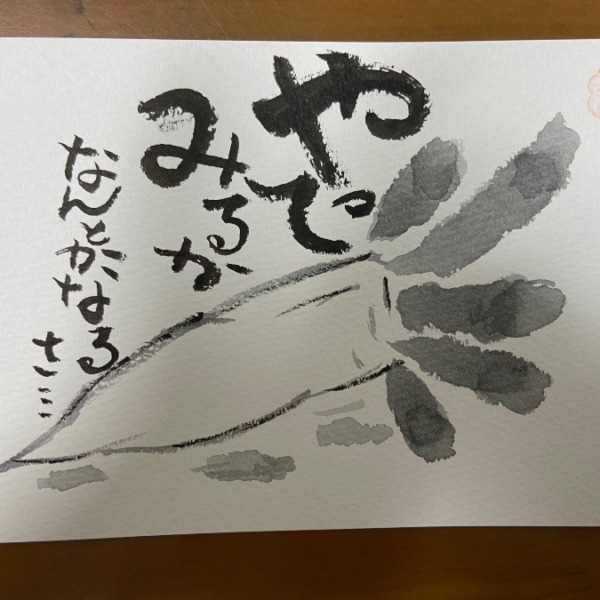 やって
みるか
なんとかなる
さ…